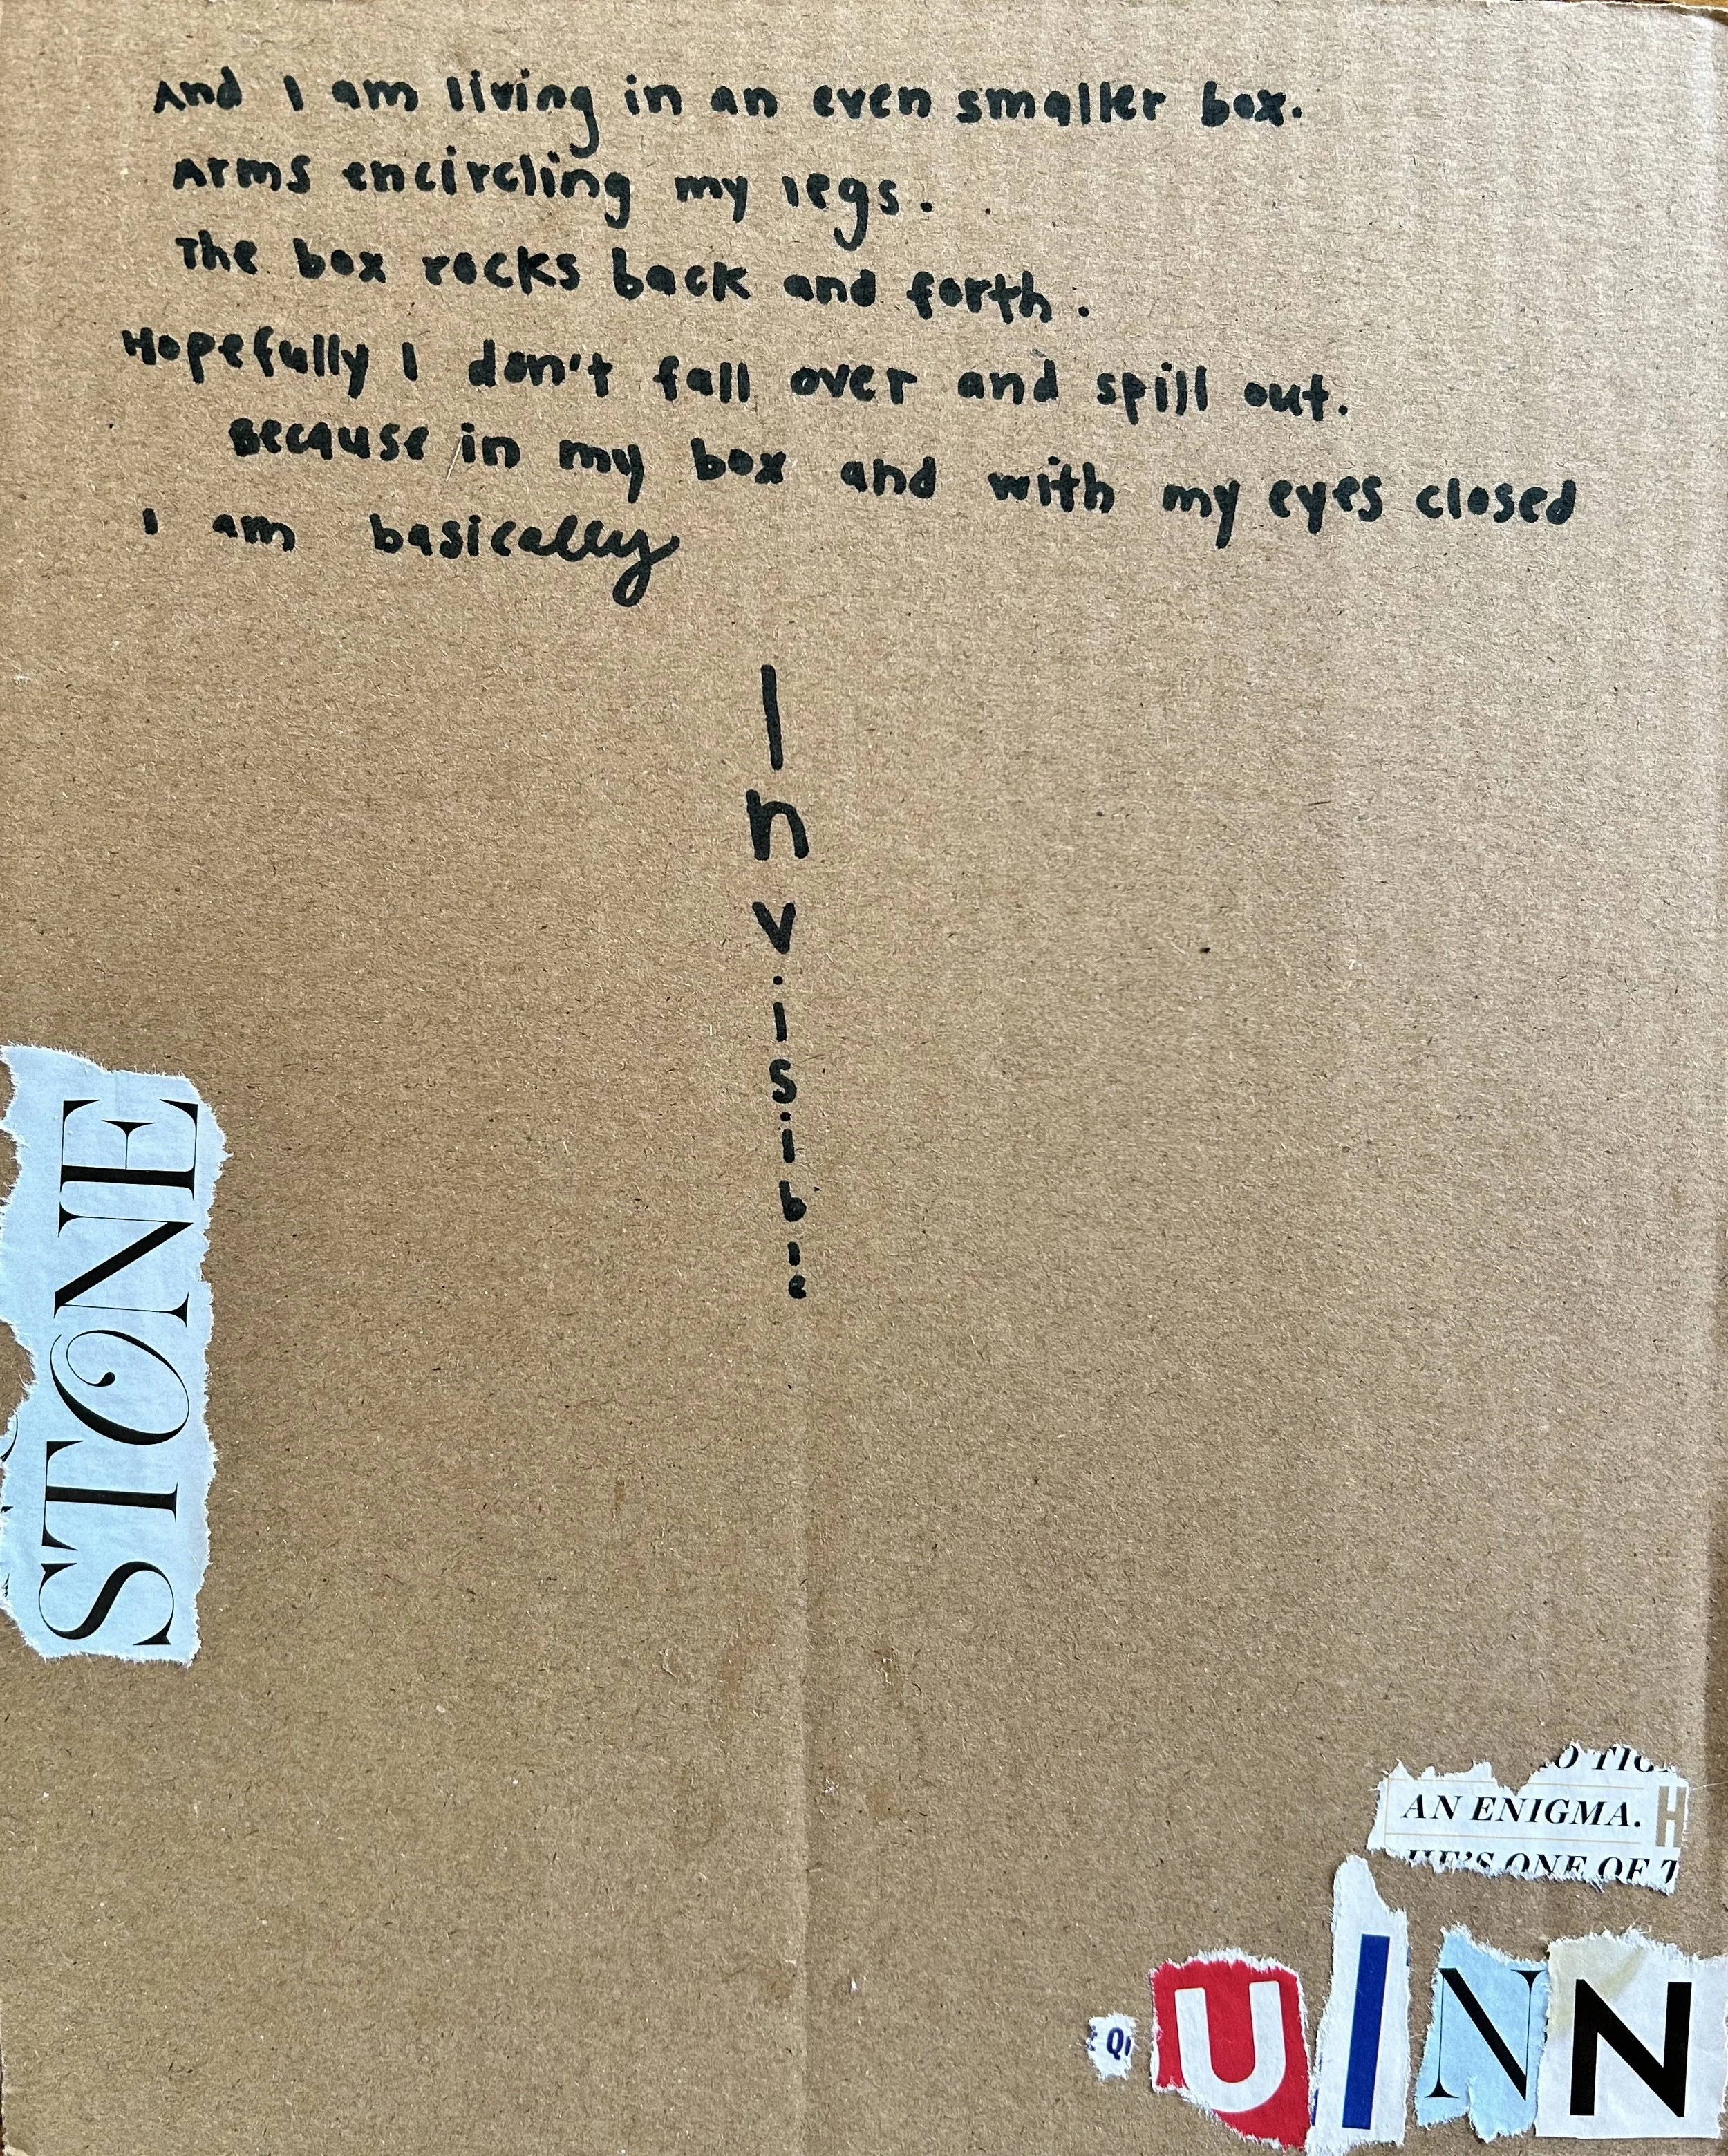 And I am living in an even smaller box.
Arms encircling my legs.
The box rocks back and forth.
Hopefully I don't fall over and spill out.
Because in my box and with my eyes closed
I am basically
I
n
v
i
s
i
b
l
e
STONE
AN ENIGMA. H
HE'S ONE OF T
Q UINN